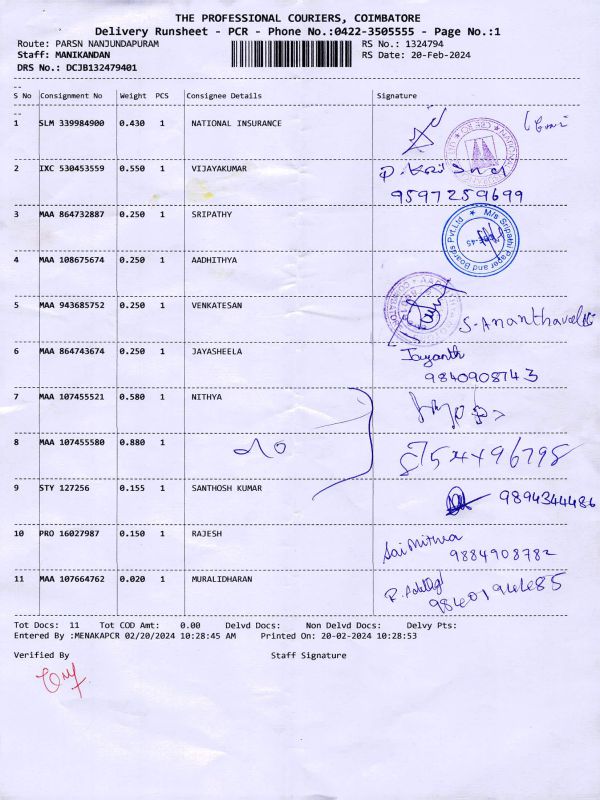 THE PROFESSIONAL COURIERS, COIMBATORE
Delivery Runsheet - PCR - Phone No.:0422-3505555 - Page No.:1
Route: PARSN NANJUNDAPURAM RS No.: 1324794
Staff: MANIKANDAN RS Date: 20-Feb-2024
DRS No.: DCJB132479401
S No Consignment No Weight PCS Consignee Details Signature
1 SLM 339984900 0.430 1 NATIONAL INSURANCE
NATIONAL
2 IXC 530453559 0.550 1 VIJAYAKUMAR
9597259699
3 MAA 864732887 0.250 1 SRIPATHY
M/s Sripathi Paper and Boards Pvt.Ltd
4 MAA 108675674 0.250 1 AADHITHYA
5 MAA 943685752 0.250 1 VENKATESAN
S. Ananthavel
6 MAA 864743674 0.250 1 JAYASHEELA Jayanth
9840908743
7 MAA 107455521 0.580 1 NITHYA
8 MAA 107455580 0.880 1
8754496798
9 STY 127256 0.155 1 SANTHOSH KUMAR 9894344486
10 PRO 16027987 0.150 1 RAJESH Sai Nithya
9884908782
11 MAA 107664762 0.020 1 MURALIDHARAN
9840194485
Tot Docs: 11 Tot COD Amt: 0.00 Delvd Docs: Non Delvd Docs: Delvy Pts:
Entered By :MENAKAPCR 02/20/2024 10:28:45 AM Printed On: 20-02-2024 10:28:53
Verified By Staff Signature